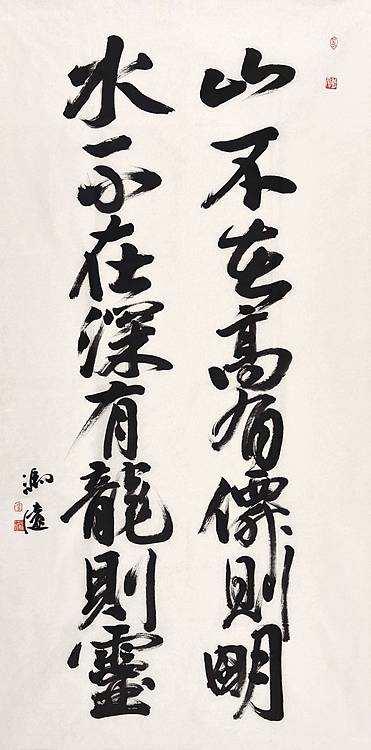 山不在高有僊則明
水不在深有龍則靈
馮遠